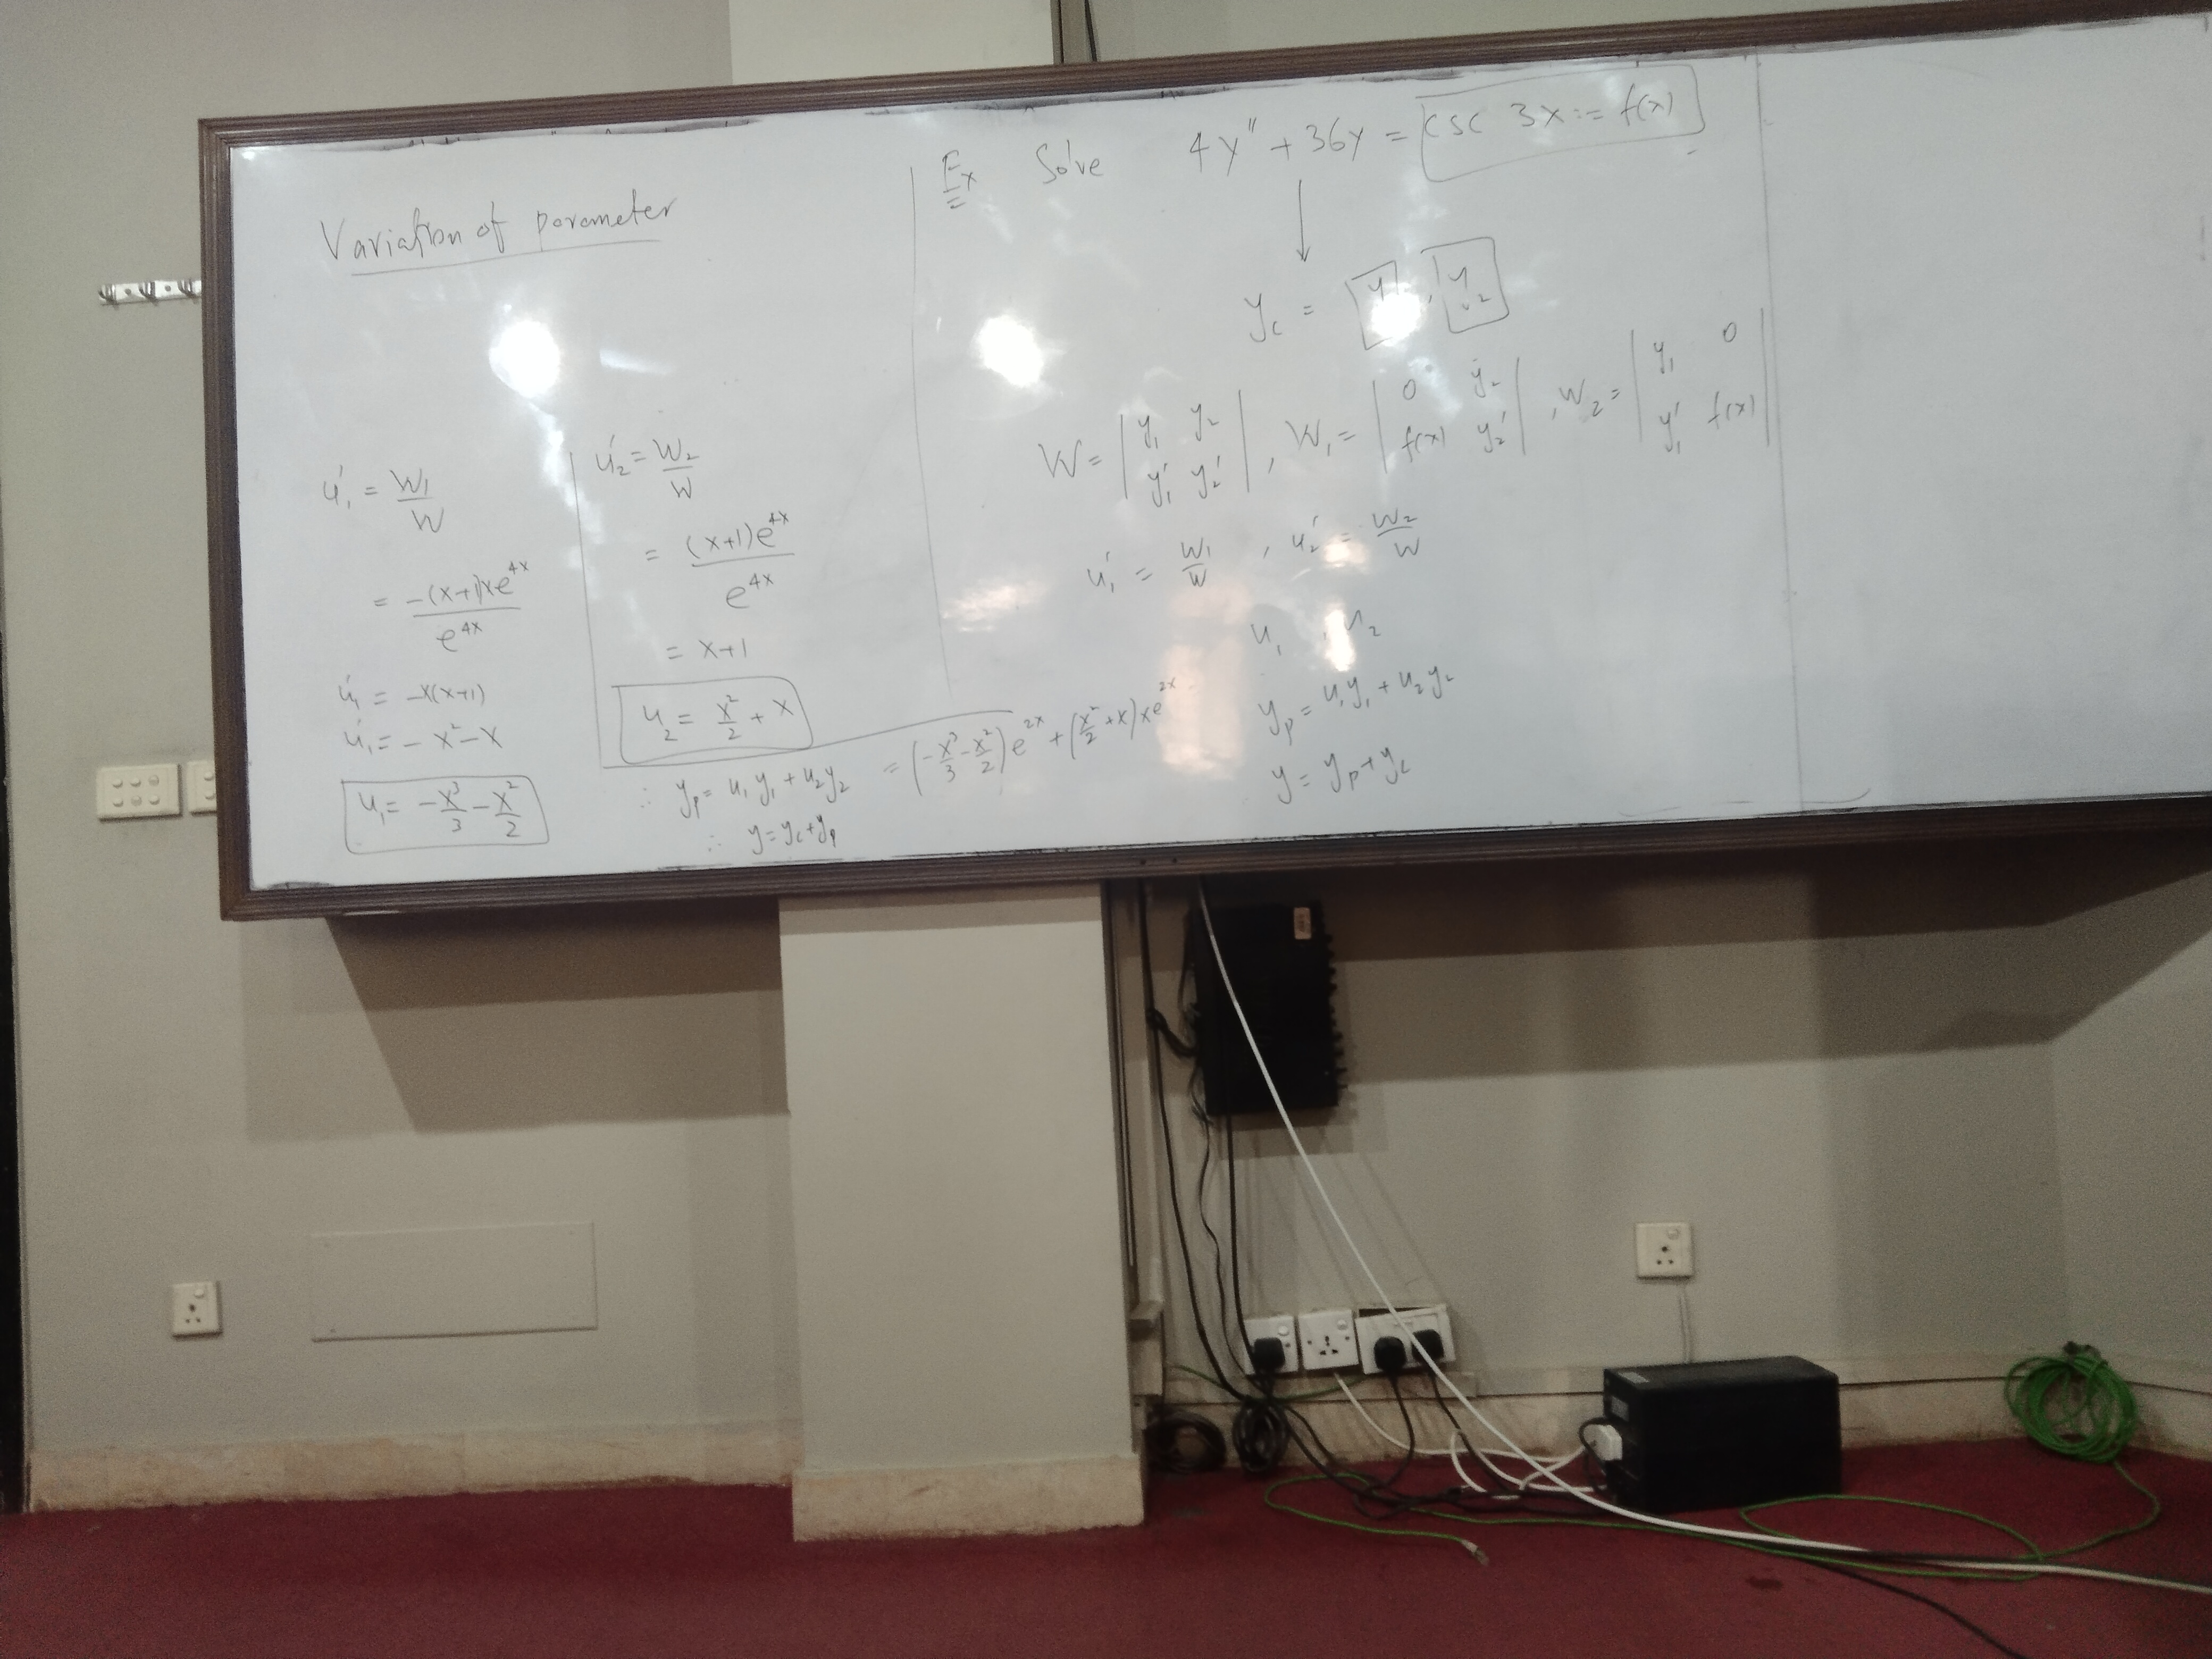 Variation of parameter
u₁' = W₁/W
= -(x+1)xe^{4x} / e^{4x}
u₁' = -x(x+1)
u₁' = -x²-x
u₁ = -x³/3 - x²/2
u₂' = W₂/W
= (x+1)e^{4x} / e^{4x}
= x+1
u₂ = x²/2 + x
∴ yₚ = u₁y₁ + u₂y₂ = (-x³/3 - x²/2)e^{2x} + (x²/2 + x)xe^{2x}
∴ y = y_c + yₚ
Ex Solve 4y'' + 36y = csc 3x := f(x)
y_c = y₁, y₂
W = |y₁ y₂; y₁' y₂'|, W₁ = |0 y₂; f(x) y₂'|, W₂ = |y₁ 0; y₁' f(x)|
u₁' = W₁/W, u₂' = W₂/W
u₁, u₂
yₚ = u₁y₁ + u₂y₂
y = yₚ + y_c